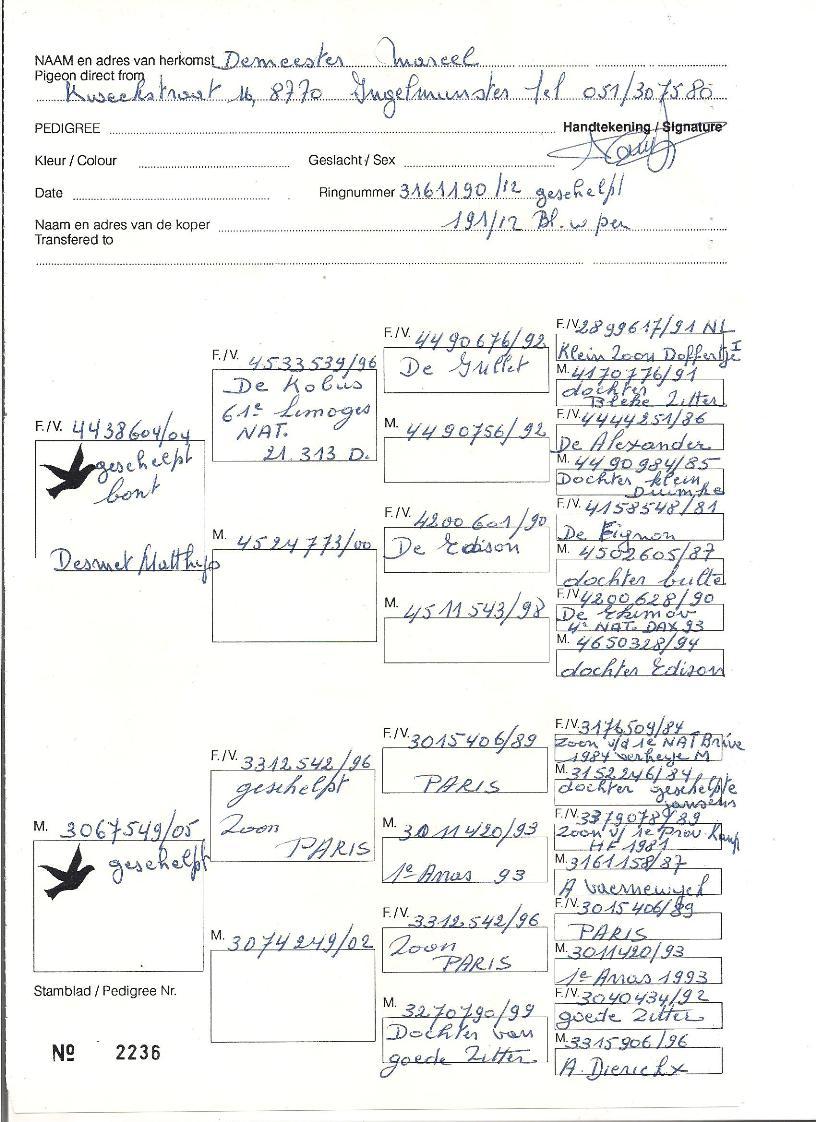 NAAM en adres van herkomst Demeester Marcel
Pigeon direct from
Kweekstraat 16, 8770 Ingelmunster Tel 051/307580
PEDIGREE
Handtekening / Signature
Kleur / Colour
Geslacht / Sex
Date
Ringnummer 3161190/12 geschelpt
Naam en adres van de koper 191/12 Bl. w pen
Transfered to
F./V. 4438604/04
geschelpt
bont
Desmet Matthijs
F./V. 4533539/96
De Kobus
61e Limoges
NAT.
21.313 D.
M. 4524773/00
F./V. 4490676/92
De Grillet
M. 4490756/92
F./V. 4200601/90
De Edison
M. 4511543/98
F./V. 2899617/91 NL
Klein Zoon Doffertje I
M. 4170776/91
dochter
Bleke Zitter
F./V. 4444251/86
De Alexander
M. 4490984/85
Dochter klein
Duimke
F./V. 4158548/81
De Fignon
M. 4502605/87
dochter bulte
F./V. 4200628/90
De Ekimov
4e NAT. DAX 93
M. 4650328/94
dochter Edison
M. 3067549/05
geschelpt
F./V. 3312542/96
geschelpt
Zoon
PARIS
M. 3074249/02
F./V. 3015406/89
PARIS
M. 3011420/93
1e Arras 93
F./V. 3312542/96
Zoon
PARIS
M. 3270790/99
Dochter van
goede Zitter
F./V. 3176509/84
Zoon v/d 1e NAT Brive
1984 verheye M
M. 3152246/84
dochter geschelpte
jansens
F./V. 3379078/89
Zoon v/ 1e Prov.
HF 1981
M. 3161158/87
A Vaernewyck
F./V. 3015406/89
PARIS
M. 3011420/93
1e Arras 1993
F./V. 3040434/92
goede Zitter
M. 3315906/96
A. Dierickx
Stamblad / Pedigree Nr.
Nº 2236